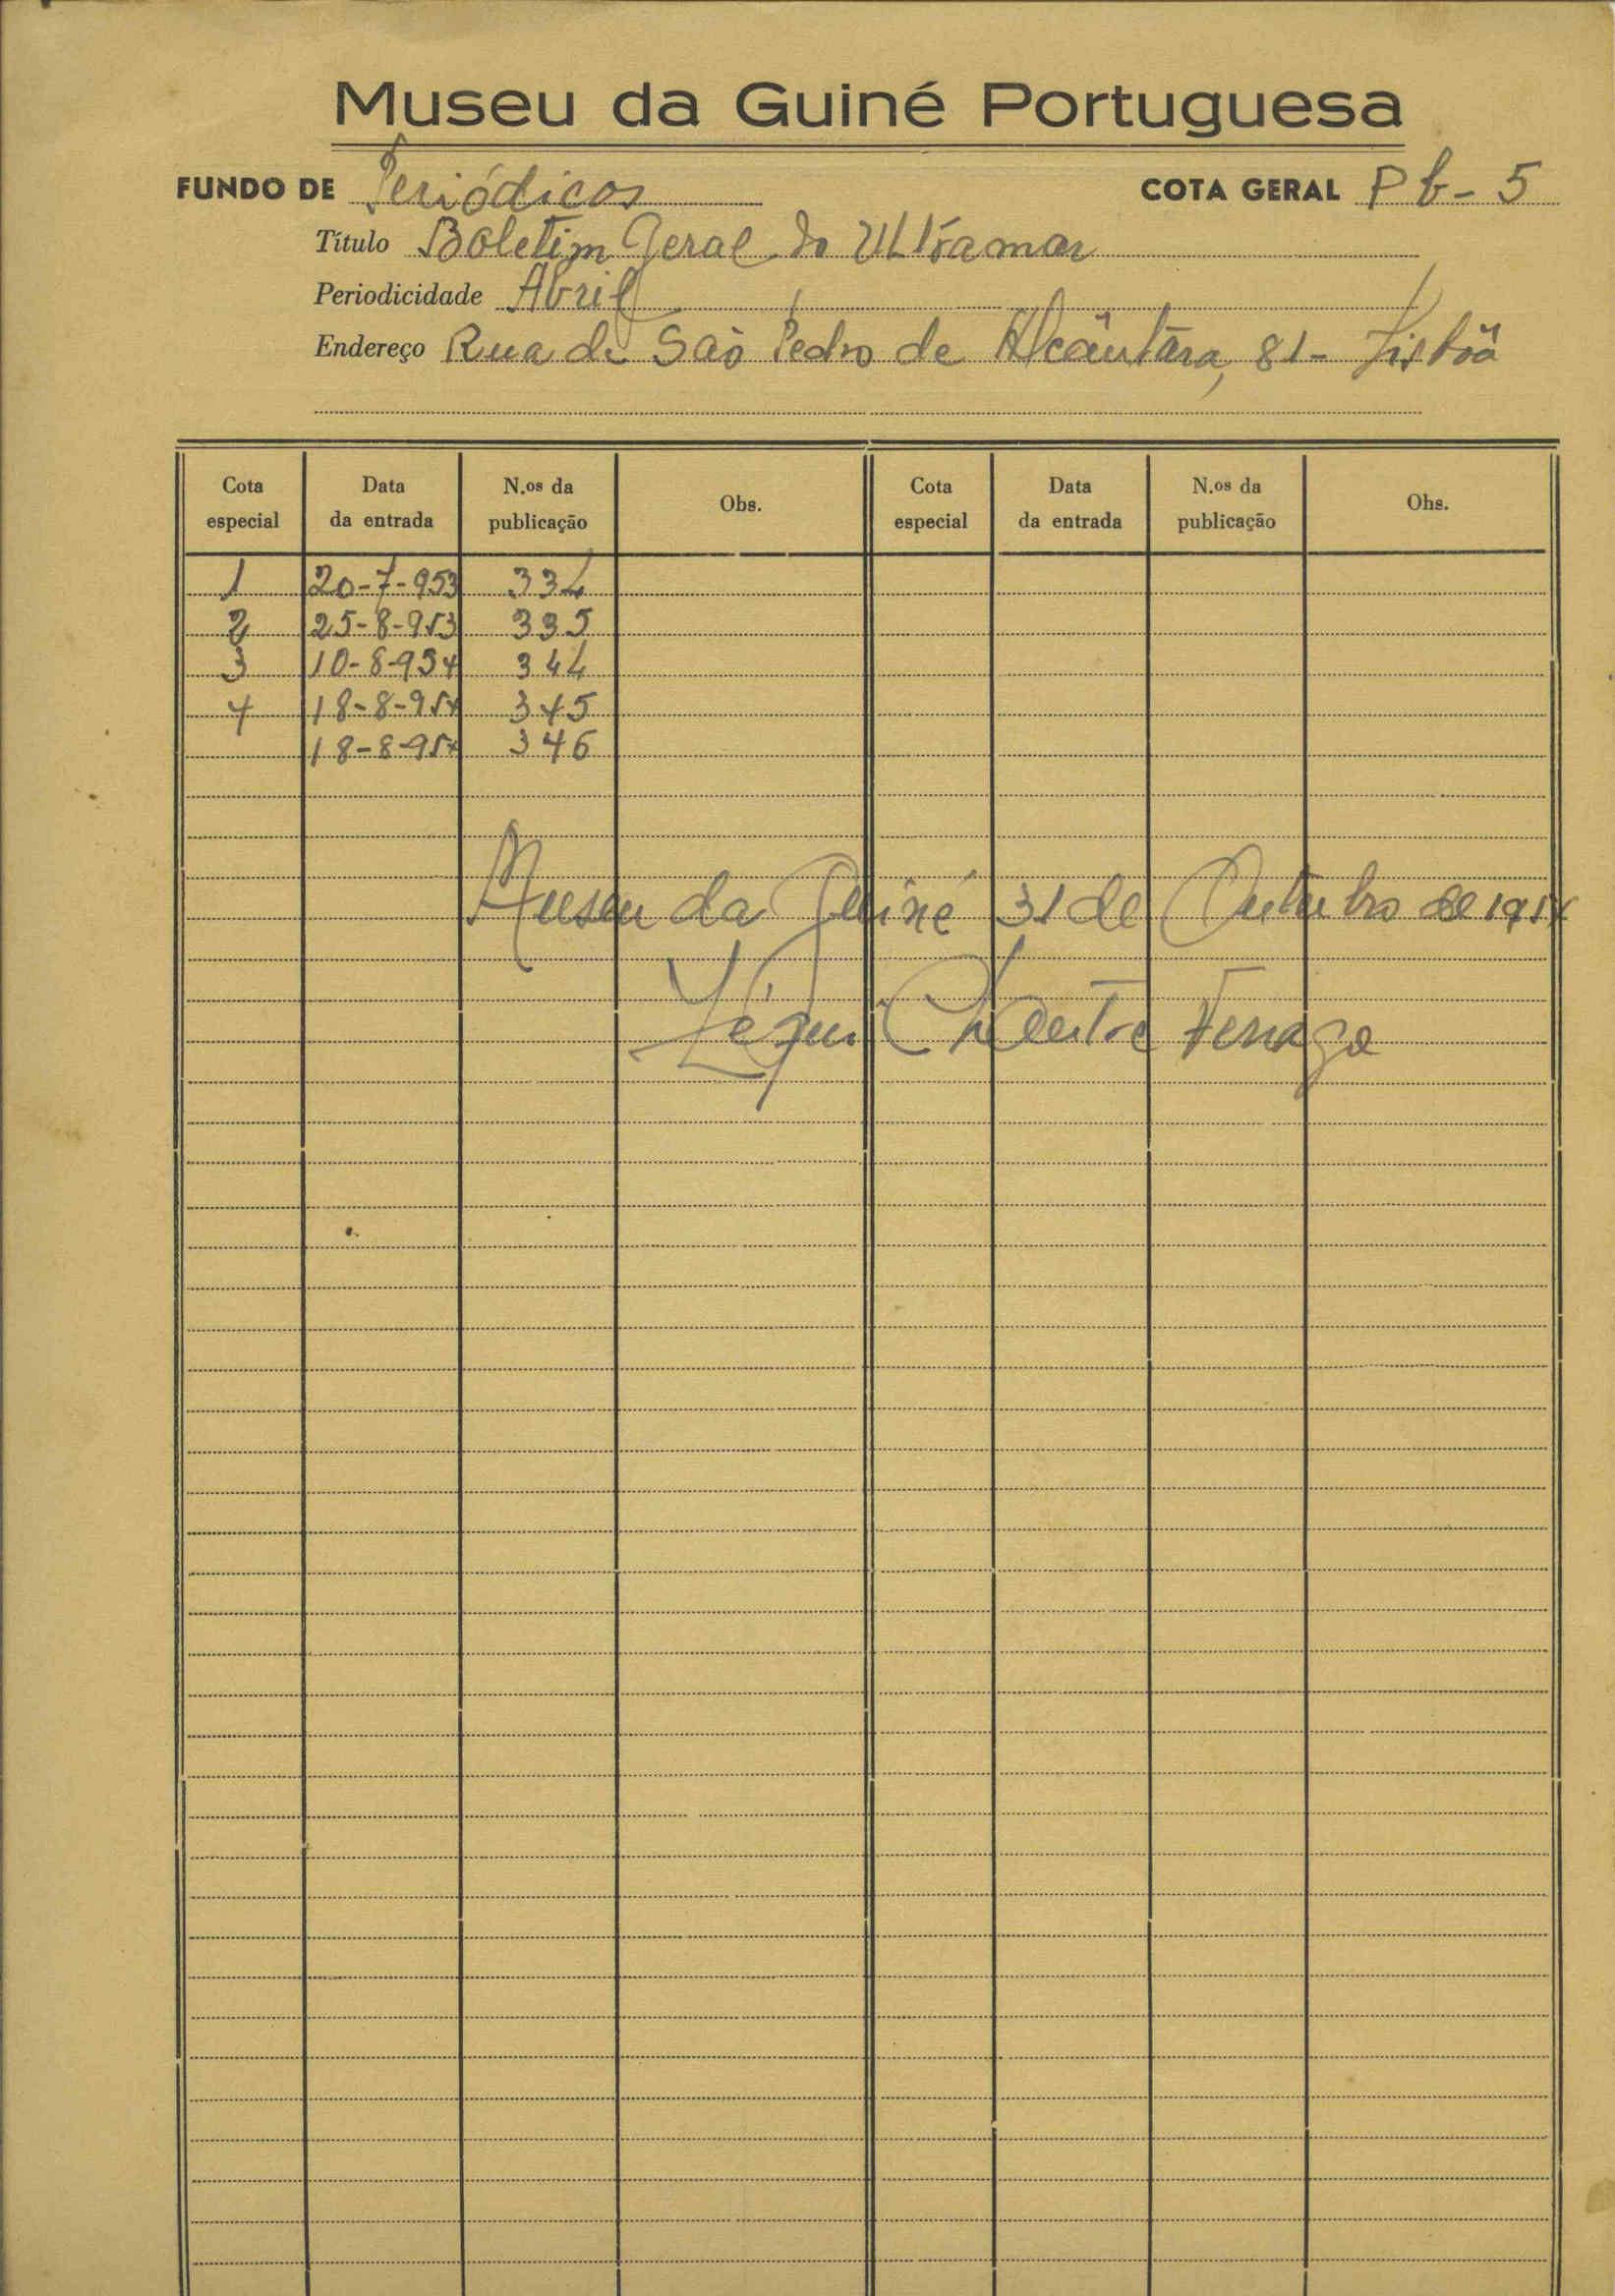 Museu da Guiné Portuguesa
FUNDO DE Periódicos COTA GERAL Pb-5
Título Boletim Geral do Ultramar
Periodicidade Abril
Endereço Rua de São Pedro de Alcântara, 81- Lisbôa
Cota especial Data da entrada N.os da publicação Obs. Cota especial Data da entrada N.os da publicação Obs.
1 20-7-953 334
2 25-8-953 335
3 10-8-954 344
4 18-8-954 345
18-8-954 346
Museu da Guiné 31 de Outubro de 1954